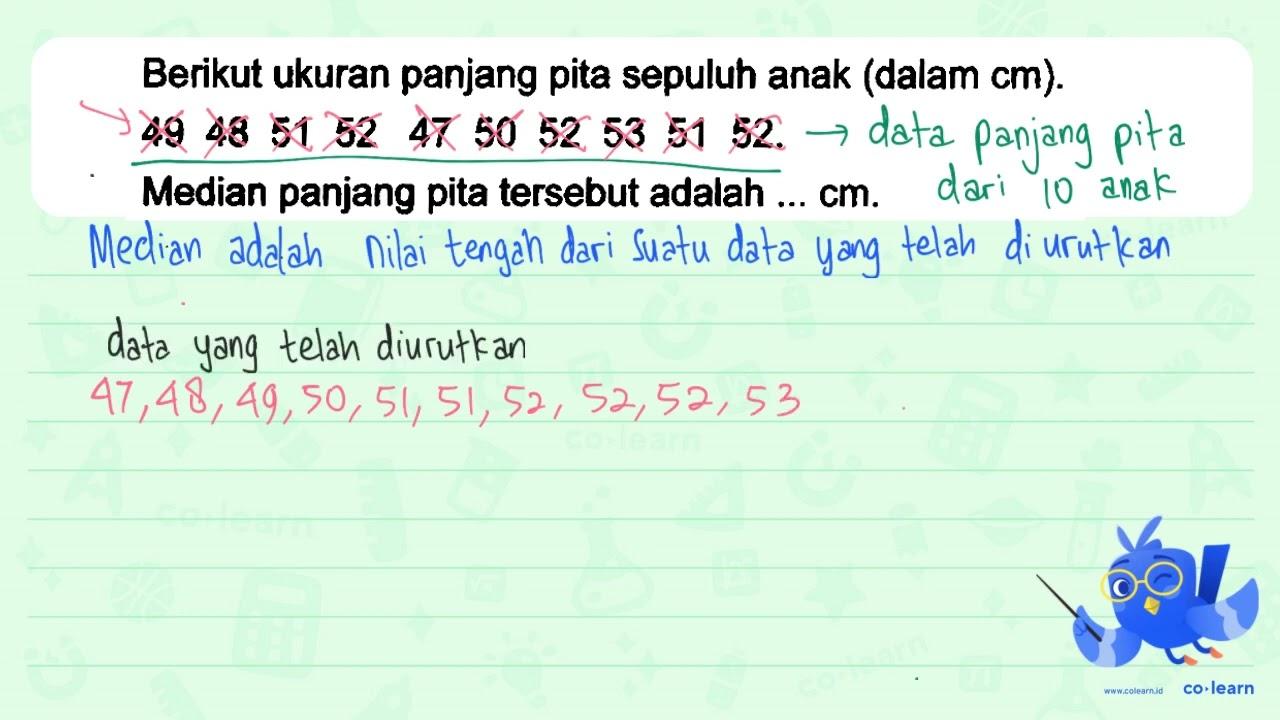 Berikut ukuran panjang pita sepuluh anak (dalam cm).
49 48 51 52 47 50 52 53 51 52. → data panjang pita
dari 10 anak
Median panjang pita tersebut adalah ... cm.
Median adalah nilai tengah dari suatu data yang telah diurutkan
data yang telah diurutkan
47, 48, 49, 50, 51, 51, 52, 52, 52, 53
co·learn
co·learn
co·learn
co·learn
www.colearn.id co·learn